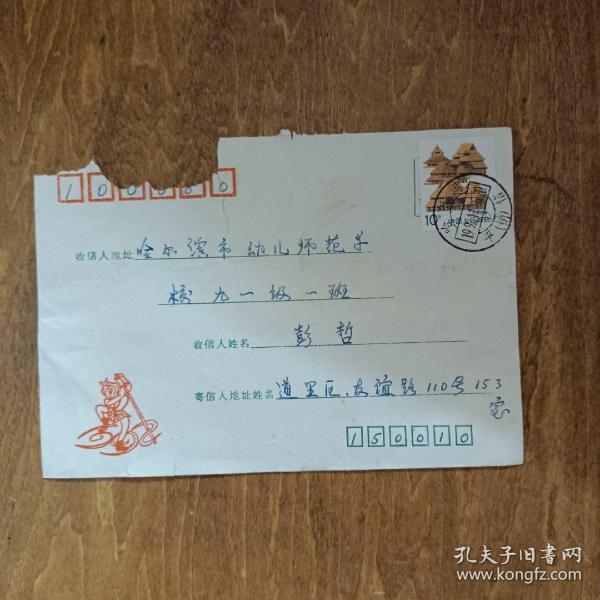 100080
收信人地址 哈尔滨市幼儿师范学
校九一级一班
收信人姓名 彭哲
寄信人地址姓名 道里区、友谊路110号153
室
150010
10
孔夫子旧书网
www.kongfz.com